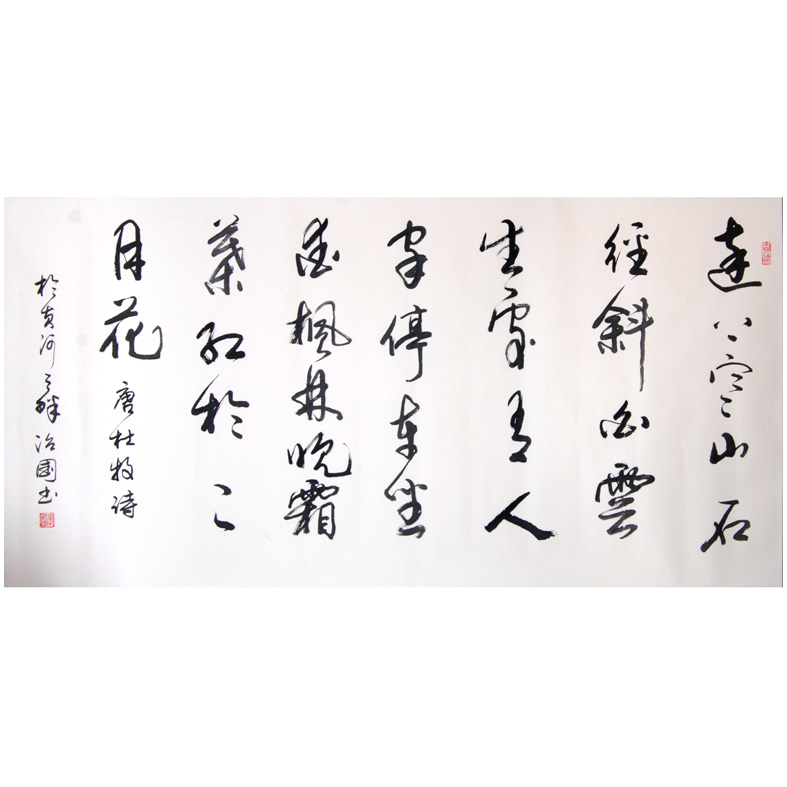 遠上寒山石
徑斜白雲
生處有人
家停車坐
愛楓林晚霜
葉紅於二
月花 唐杜牧诗
於黄河之畔 治國书